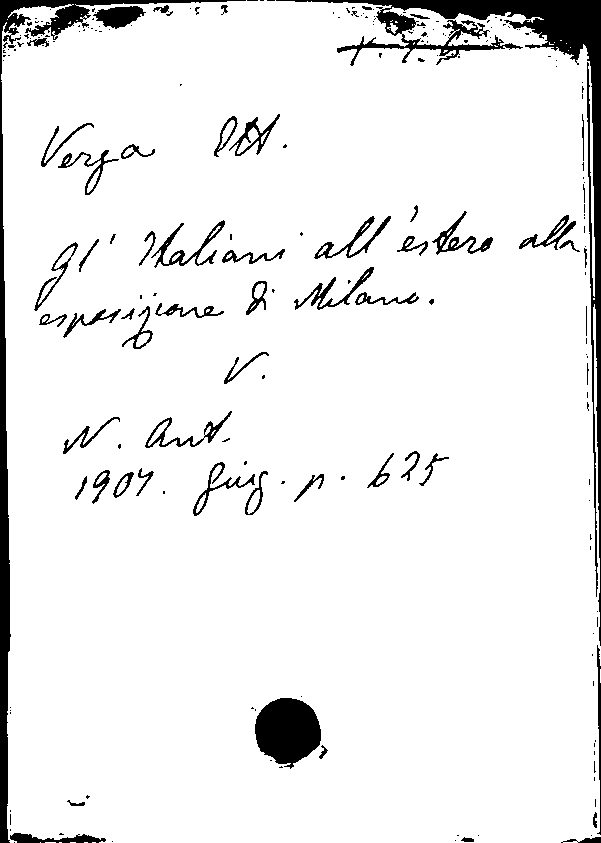 Verga Ett.
Gl' Italiani all'estero alla
esposizione di Milano.
V.
N. Ant.
1907. giug. p. 625